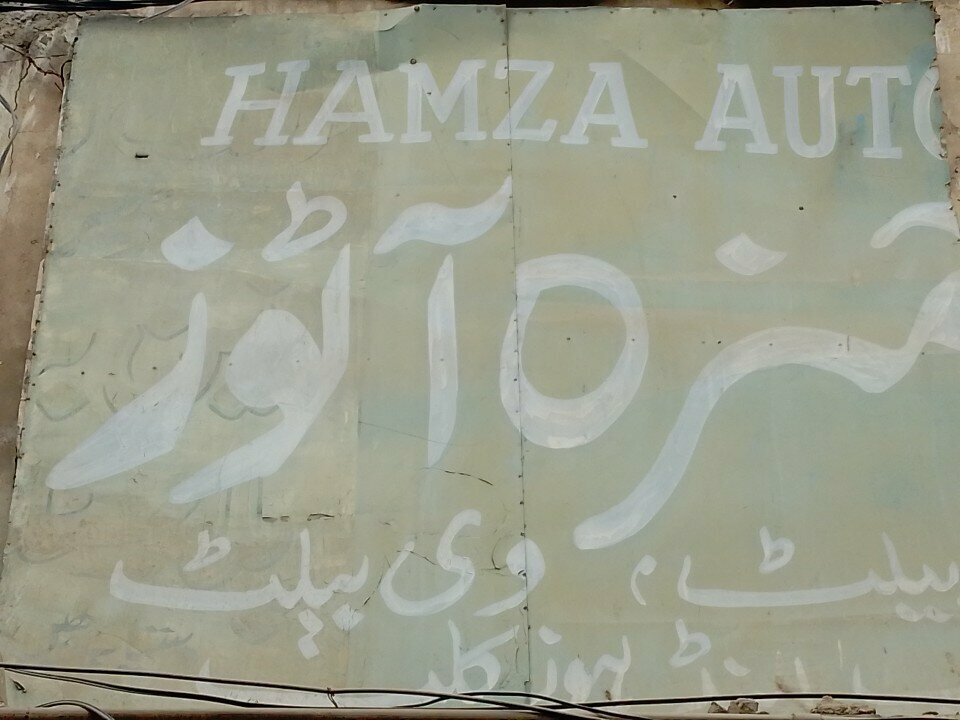 HAMZA AUTO
حمزہ آٹوز
بیلٹ، وی بیلٹ
ہوز کل